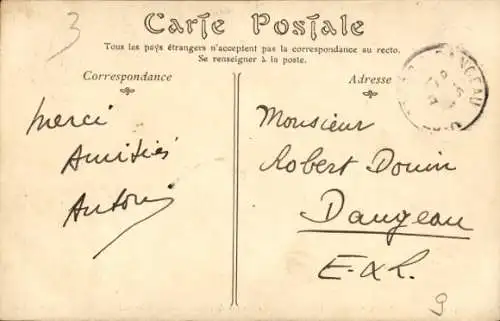 3
Carte Postale
Tous les pays étrangers n'acceptent pas la correspondance au recto.
Se renseigner à la poste.
Correspondance
Adresse
DANGEAU
Merci
Amitiés
Antoni
Monsieur
Robert Douin
Dangeau
E-&L.
9